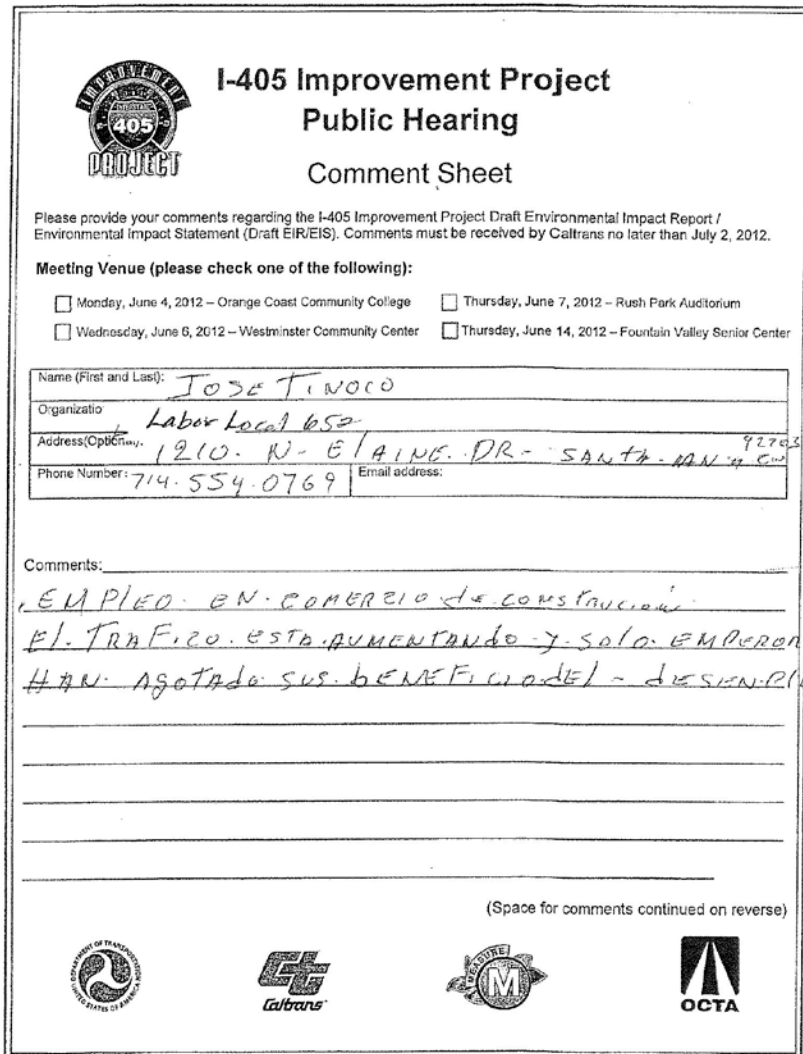 IMPROVEMENT
INTERSTATE
405
PROJECT
I-405 Improvement Project
Public Hearing
Comment Sheet
Please provide your comments regarding the I-405 Improvement Project Draft Environmental Impact Report /
Environmental Impact Statement (Draft EIR/EIS). Comments must be received by Caltrans no later than July 2, 2012.
Meeting Venue (please check one of the following):
Monday, June 4, 2012 – Orange Coast Community College
Thursday, June 7, 2012 – Rush Park Auditorium
Wednesday, June 6, 2012 – Westminster Community Center
Thursday, June 14, 2012 – Fountain Valley Senior Center
Name (First and Last): JOSE TINOCO
Organizatio Labor Local 652
Address(Optional). 1210. N- ElAINE. DR- SANTA-ANA 92703
Phone Number: 714.554.0769 Email address:
Comments:
EMPlEO. EN. COMERZIO de CONSTRUCION
El. TRAFICO. ESTA. AUMENTANdO - y. SOlO. EMPEROR
HAN. AGOTAdO. SUS. bENEFICIO dEl - dESEN
(Space for comments continued on reverse)
DEPARTMENT OF TRANSPORTATION
UNITED STATES OF AMERICA
Caltrans
MEASURE
M
OCTA